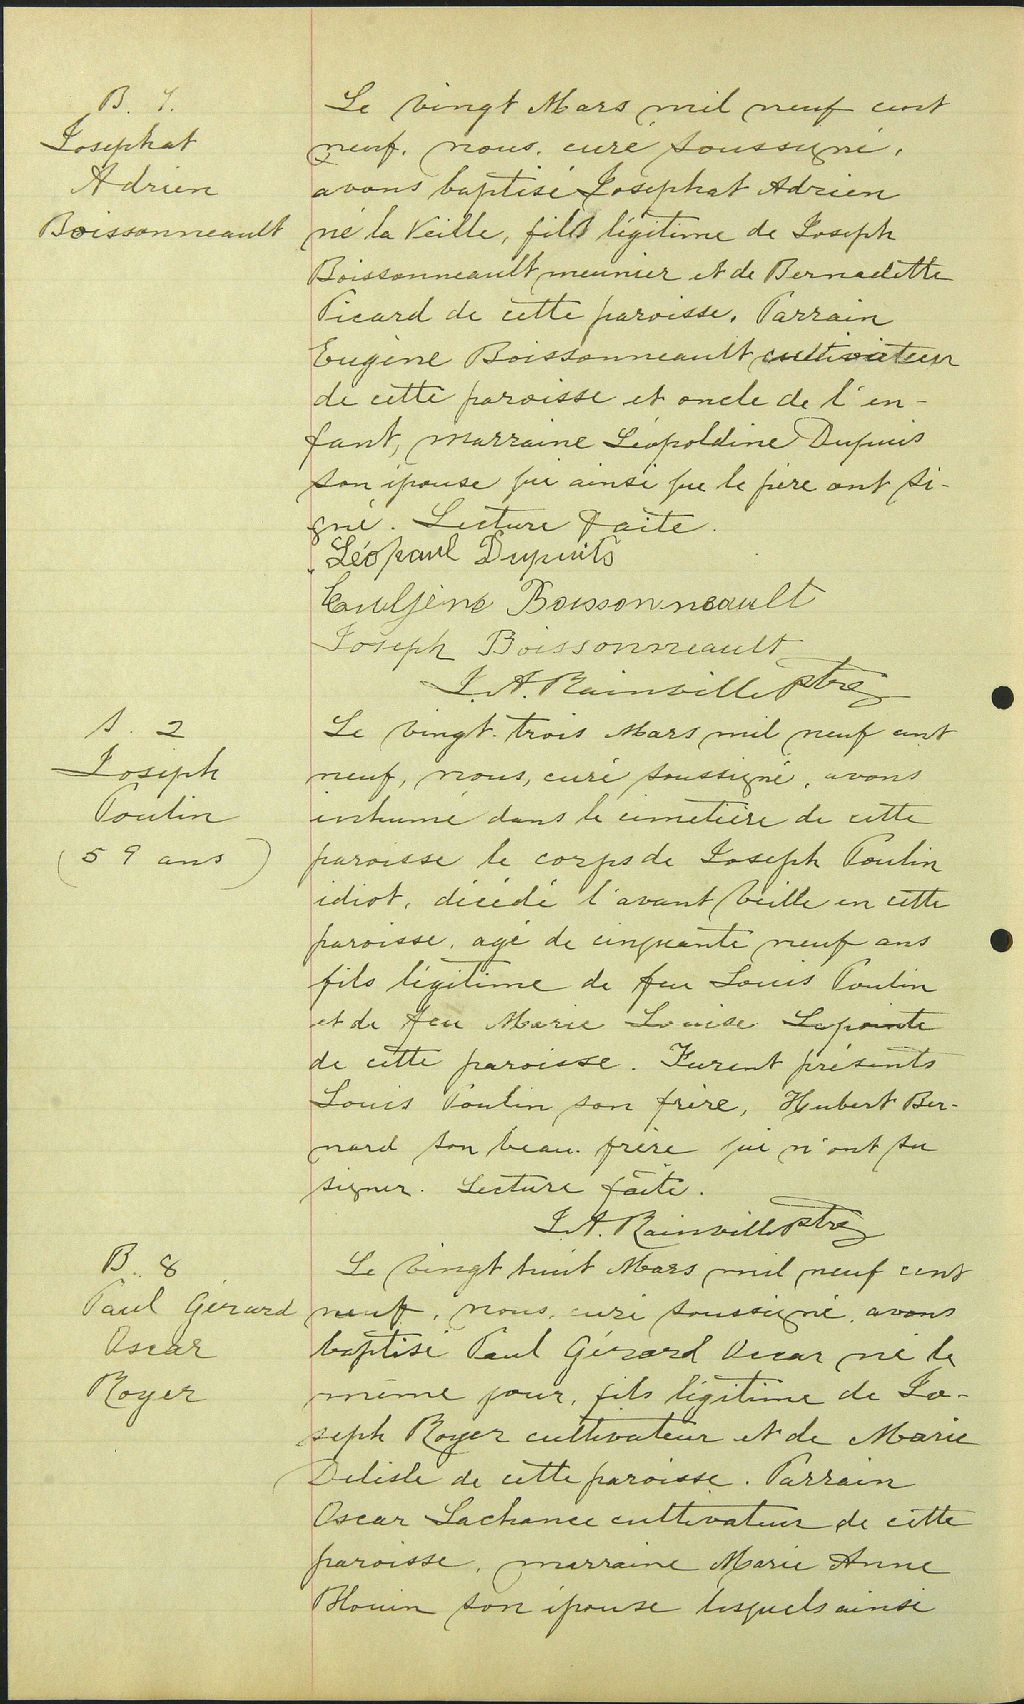 B. 7.
Josephat
Adrien
Boissonneault
Le vingt Mars mil neuf cent
neuf, nous, curé soussigné,
avons baptisé Josephat Adrien
né la veille, fils légitime de Joseph
Boissonneault meunier et de Bernadette
Picard de cette paroisse. Parrain
Eugène Boissonneault cultivateur
de cette paroisse et oncle de l'en-
fant, marraine Léopoldine Dupuis
son épouse qui ainsi que le père ont si-
gné. Lecture faite.
Léopaul Dupuits
Euljène Boissonneault
Joseph Boissonneault
J. A. Rainville ptre
S. 2
Joseph
Poulin
(59 ans)
Le vingt-trois Mars mil neuf cent
neuf, nous, curé soussigné, avons
inhumé dans le cimetière de cette
paroisse le corps de Joseph Poulin
idiot, décédé l'avant veille en cette
paroisse, agé de cinquante neuf ans
fils légitime de feu Louis Poulin
et de feu Marie Louise Lapointe
de cette paroisse. Furent présents
Louis Poulin son frère, Hubert Ber-
nard son beau-frère qui n'ont su
signer. Lecture faite.
J. A. Rainville ptre
B. 8
Paul Gérard
Oscar
Royer
Le vingt huit Mars mil neuf cent
neuf, nous, curé soussigné, avons
baptisé Paul Gérard Oscar né le
même jour, fils légitime de Jo-
seph Royer cultivateur et de Marie
Delisle de cette paroisse. Parrain
Oscar Lachance cultivateur de cette
paroisse, marraine Marie Anne
Blouin son épouse lesquels ainsi